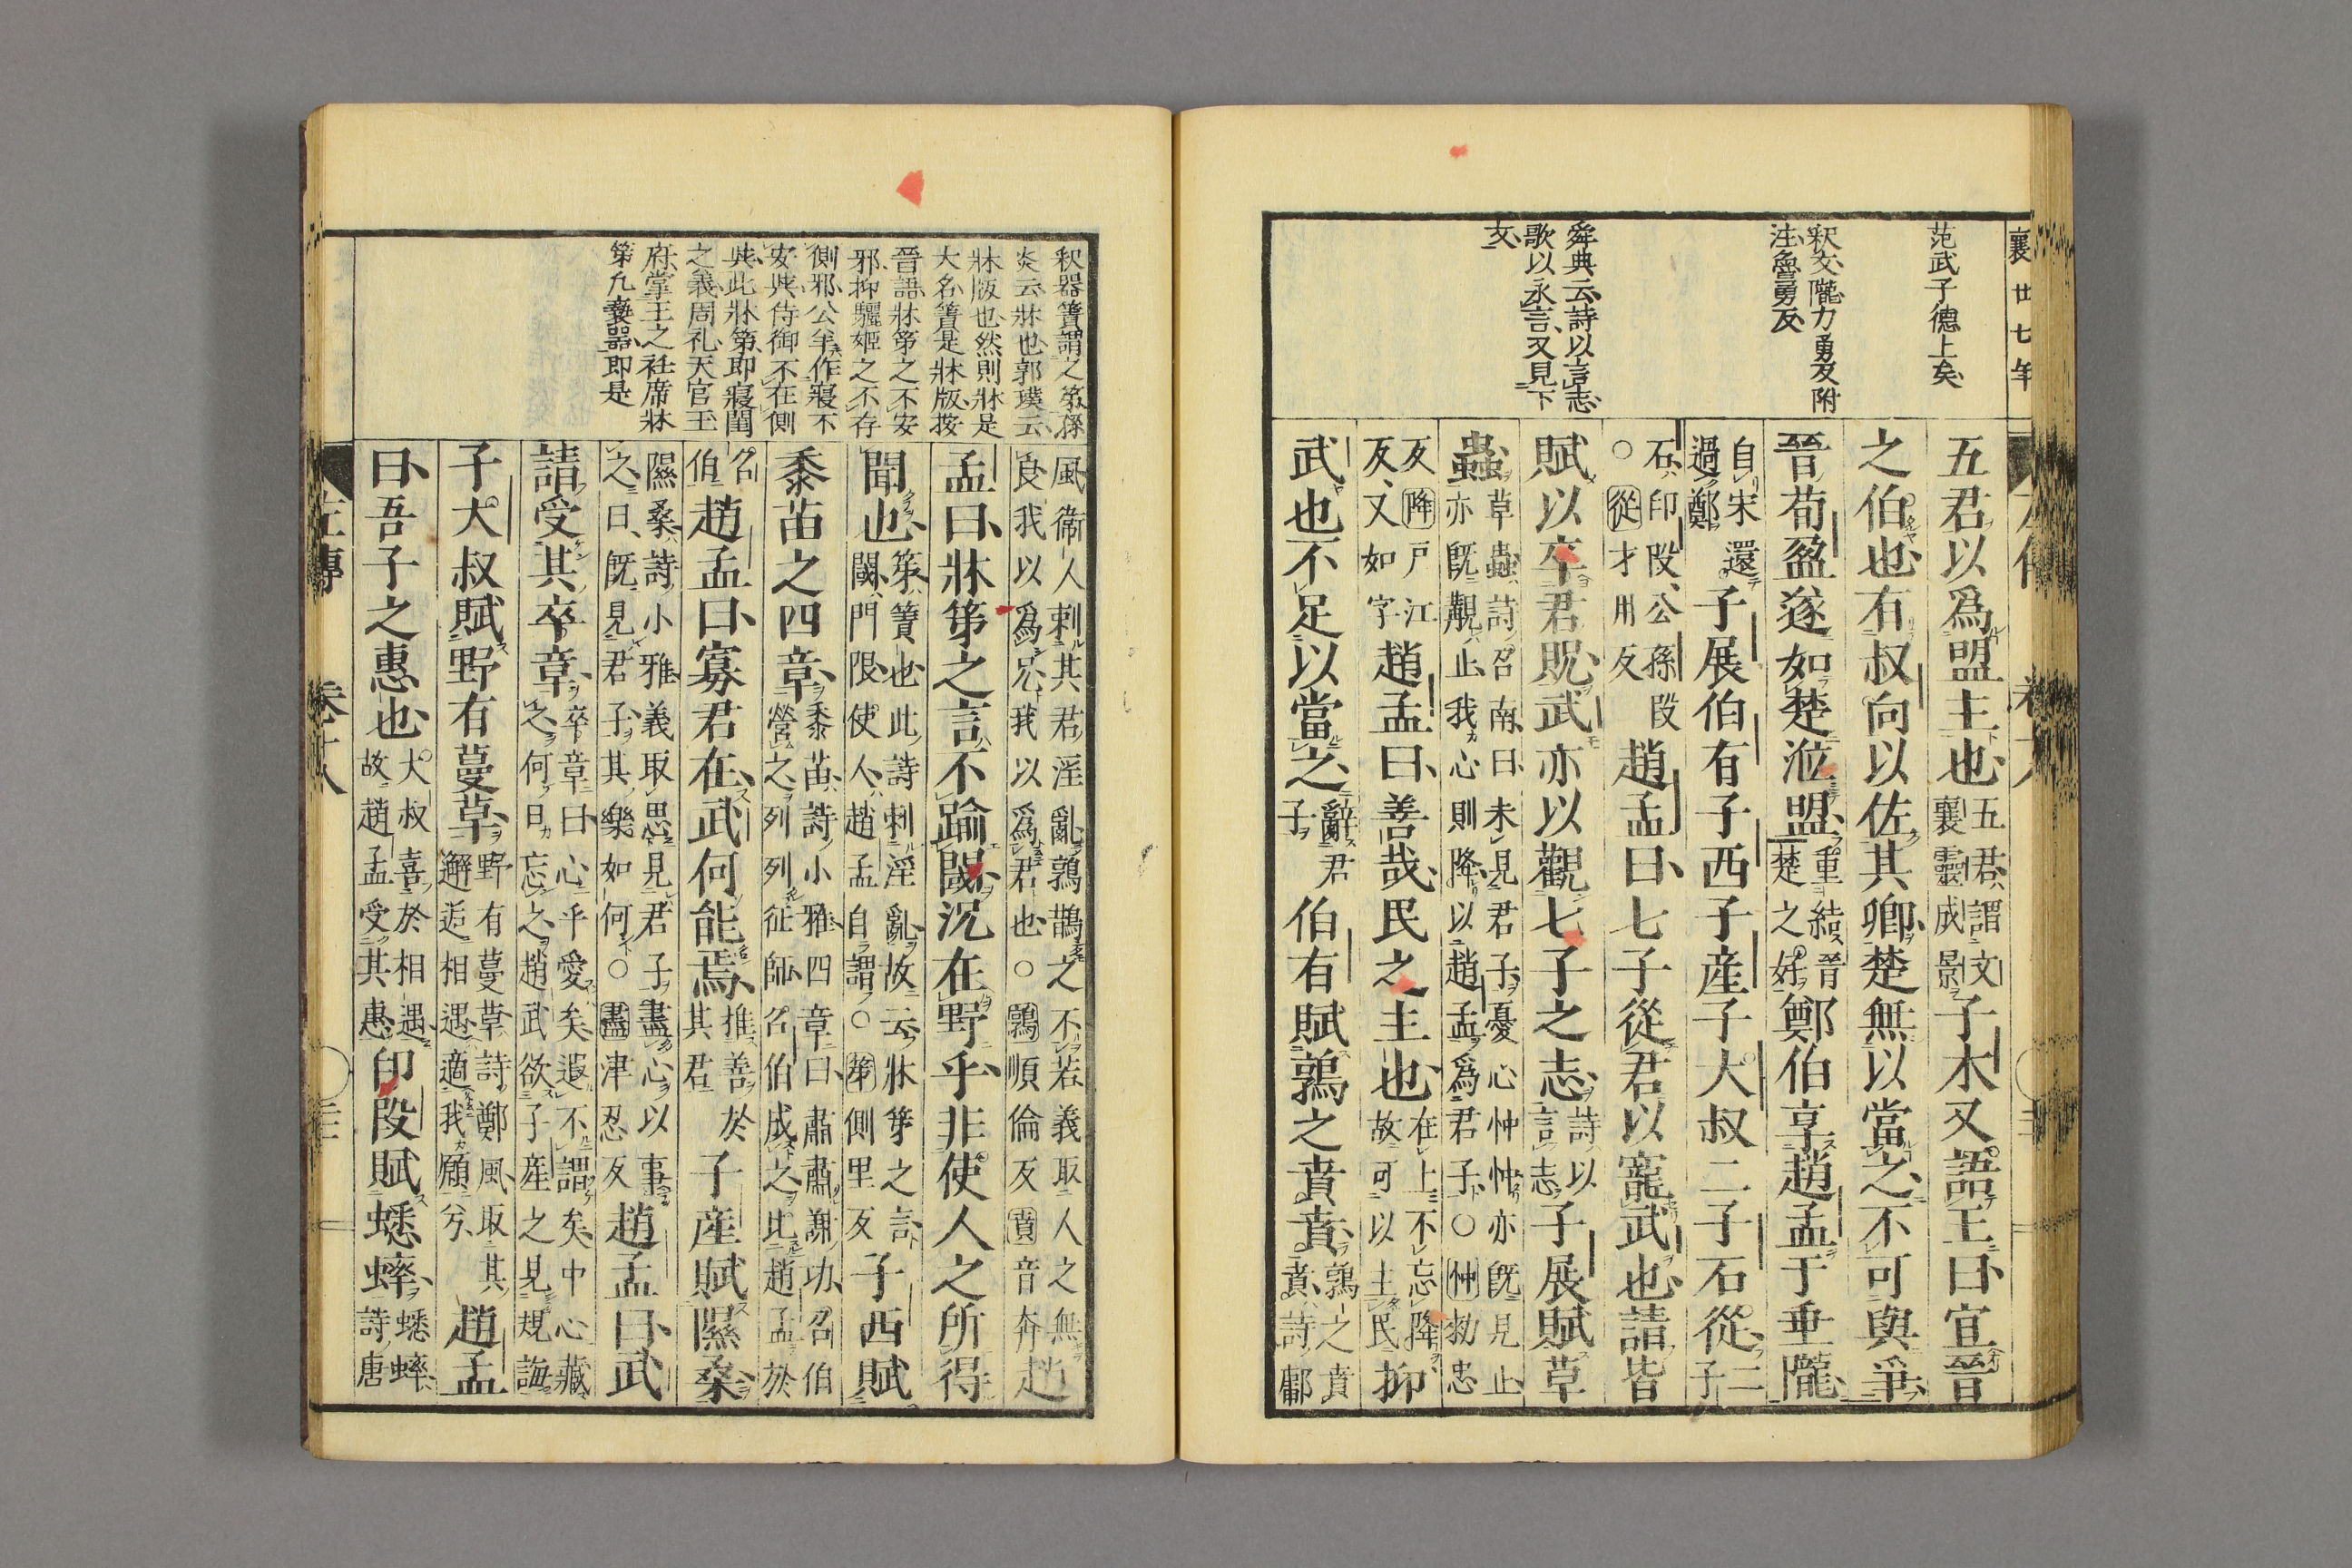 襄廿七年
范武子德上矣
釈文隴力勇反附
注魯勇反
舜典云詩以言志
歌以永言又見下
文
五君以爲盟主也五君謂文襄靈成景子木又語王曰宜晉
之伯也有叔向以佐其卿楚無以當之不可與爭
晉荀盈遂如楚涖盟重結晉楚之好鄭伯享趙孟于垂隴
自宋還過鄭子展伯有子西子產子大叔二子石從二子
石印段公孫段○從才用反趙孟曰七子從君以寵武也請皆
賦以卒君貺武亦以觀七子之志詩以言志子展賦草
蟲草蟲詩召南曰未見君子憂心忡忡亦既見止亦既覯止我心則降以趙孟爲君子○忡勑忠
反降戸江反又如字趙孟曰善哉民之主也在上不忘降故可以主民抑
武也不足以當之辭君子伯有賦鶉之賁賁鶉之賁賁詩鄘
釈器簀謂之第孫
炎云牀也郭璞云
牀版也然則牀是
大名簀是牀版按
晉語牀笫之不安
邪抑驪姬之不存
側邪公羊作寢不
安與侍御不在側
與此牀第即寢閨
之義周礼天官玉
府掌王之衽席牀
第凡褻器即是
風衞人刺其君淫亂鶉鵲之不若義取人之無良我以爲兄我以爲君也○鶉順倫反賁音奔趙
孟曰牀笫之言不踰閾況在野乎非使人之所得
聞也笫簀也此詩刺淫亂故云牀笫之言閾門限使人趙孟自謂○笫側里反子西賦
黍苗之四章黍苗詩小雅四章曰肅肅謝功召伯營之列列征師召伯成之比趙孟於
召伯趙孟曰寡君在武何能焉推善於其君子產賦隰桑
隰桑詩小雅義取思見君子盡心以事之曰既見君子其樂如何○盡津忍反趙孟曰武
請受其卒章卒章曰心乎愛矣遐不謂矣中心藏之何日忘之趙武欲子產之見規誨
子大叔賦野有蔓草野有蔓草詩鄭風取其邂逅相遇適我願兮趙孟
曰吾子之惠也大叔喜於相遇故趙孟受其惠印段賦蟋蟀蟋蟀詩唐
左傳